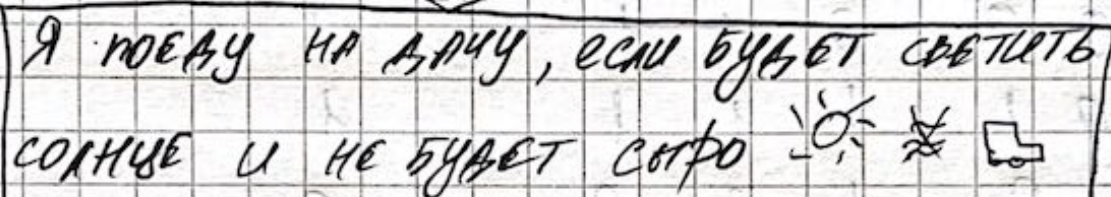 Я поеду на дачу, если будет светить
солнце и не будет сыро